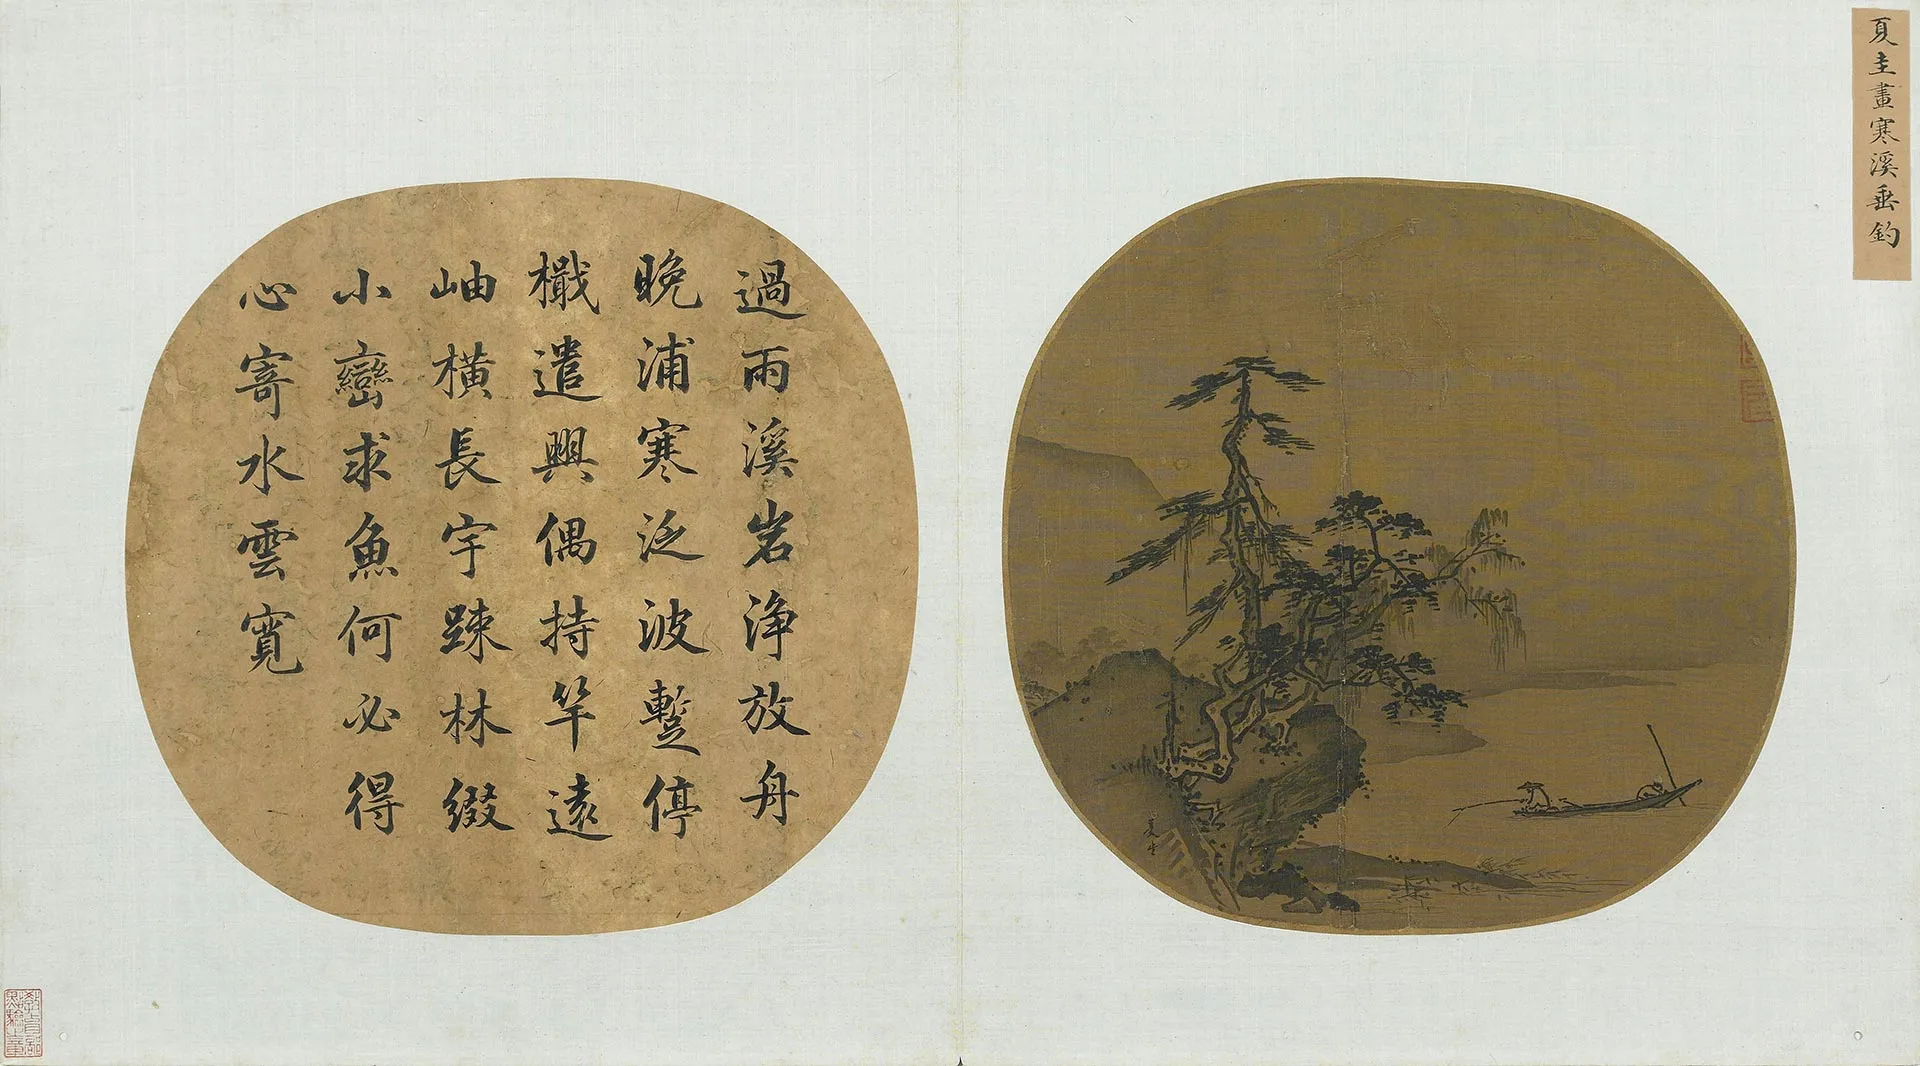 夏圭畫寒溪垂釣
夏圭
過雨溪岩浄放舟
晚浦寒泛波蹔停
檝遣興偶持竿遠
岫橫長宇踈林綴
小巒求魚何必得
心寄水雲寬